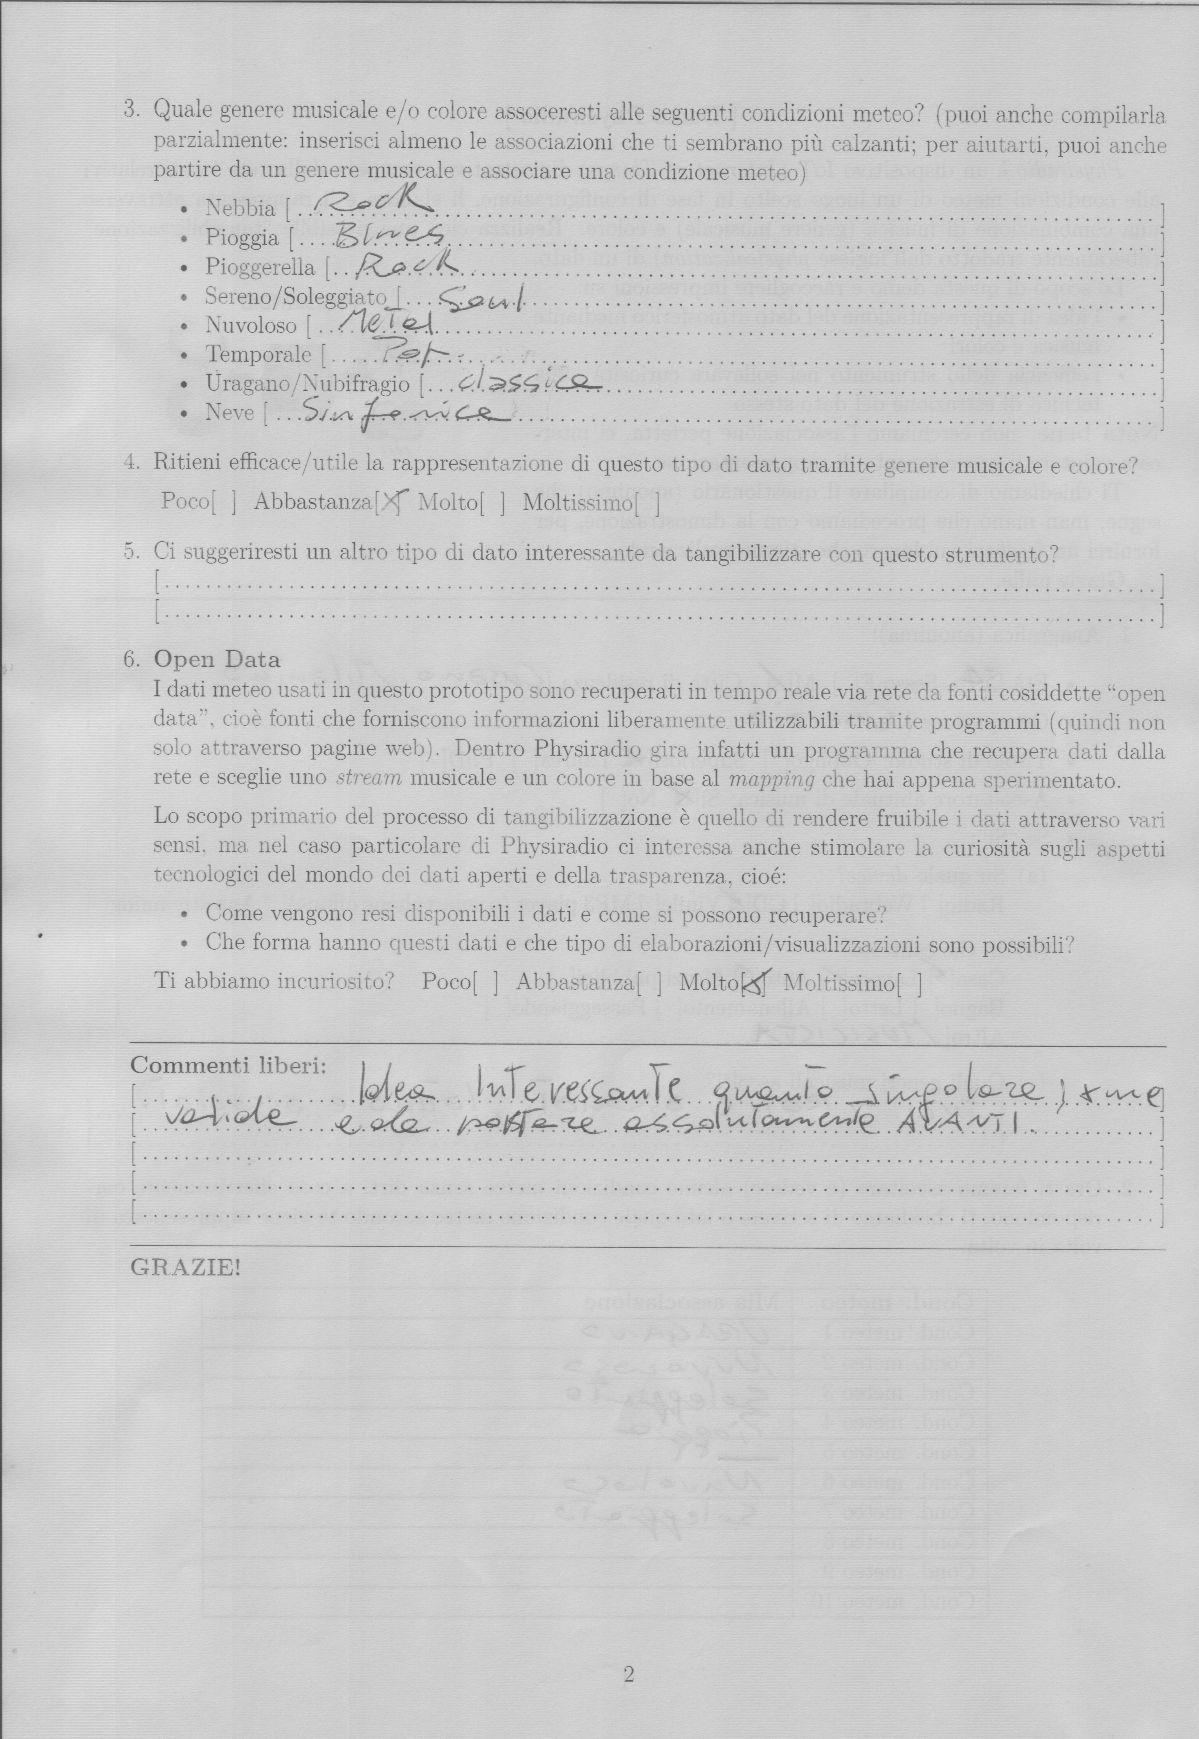 3. Quale genere musicale e/o colore assoceresti alle seguenti condizioni meteo? (puoi anche compilarla
parzialmente: inserisci almeno le associazioni che ti sembrano più calzanti; per aiutarti, puoi anche
partire da un genere musicale e associare una condizione meteo)
• Nebbia [ Rock ]
• Pioggia [ Blues ]
• Pioggerella [ Rock ]
• Sereno/Soleggiato [ Soul ]
• Nuvoloso [ Metal ]
• Temporale [ ]
• Uragano/Nubifragio [ classica ]
• Neve [ Sinfonica ]
4. Ritieni efficace/utile la rappresentazione di questo tipo di dato tramite genere musicale e colore?
Poco[ ] Abbastanza[X] Molto[ ] Moltissimo[ ]
5. Ci suggeriresti un altro tipo di dato interessante da tangibilizzare con questo strumento?
[ ]
[ ]
6. Open Data
I dati meteo usati in questo prototipo sono recuperati in tempo reale via rete da fonti cosiddette “open
data”, cioè fonti che forniscono informazioni liberamente utilizzabili tramite programmi (quindi non
solo attraverso pagine web). Dentro Physiradio gira infatti un programma che recupera dati dalla
rete e sceglie uno stream musicale e un colore in base al mapping che hai appena sperimentato.
Lo scopo primario del processo di tangibilizzazione è quello di rendere fruibile i dati attraverso vari
sensi, ma nel caso particolare di Physiradio ci interessa anche stimolare la curiosità sugli aspetti
tecnologici del mondo dei dati aperti e della trasparenza, cioé:
• Come vengono resi disponibili i dati e come si possono recuperare?
• Che forma hanno questi dati e che tipo di elaborazioni/visualizzazioni sono possibili?
Ti abbiamo incuriosito? Poco[ ] Abbastanza[ ] Molto[X] Moltissimo[ ]
Commenti liberi:
[ Idea Interessante quanto singolare; x me ]
[ valida e da portare assolutamente AVANTI. ]
[ ]
[ ]
[ ]
GRAZIE!
2